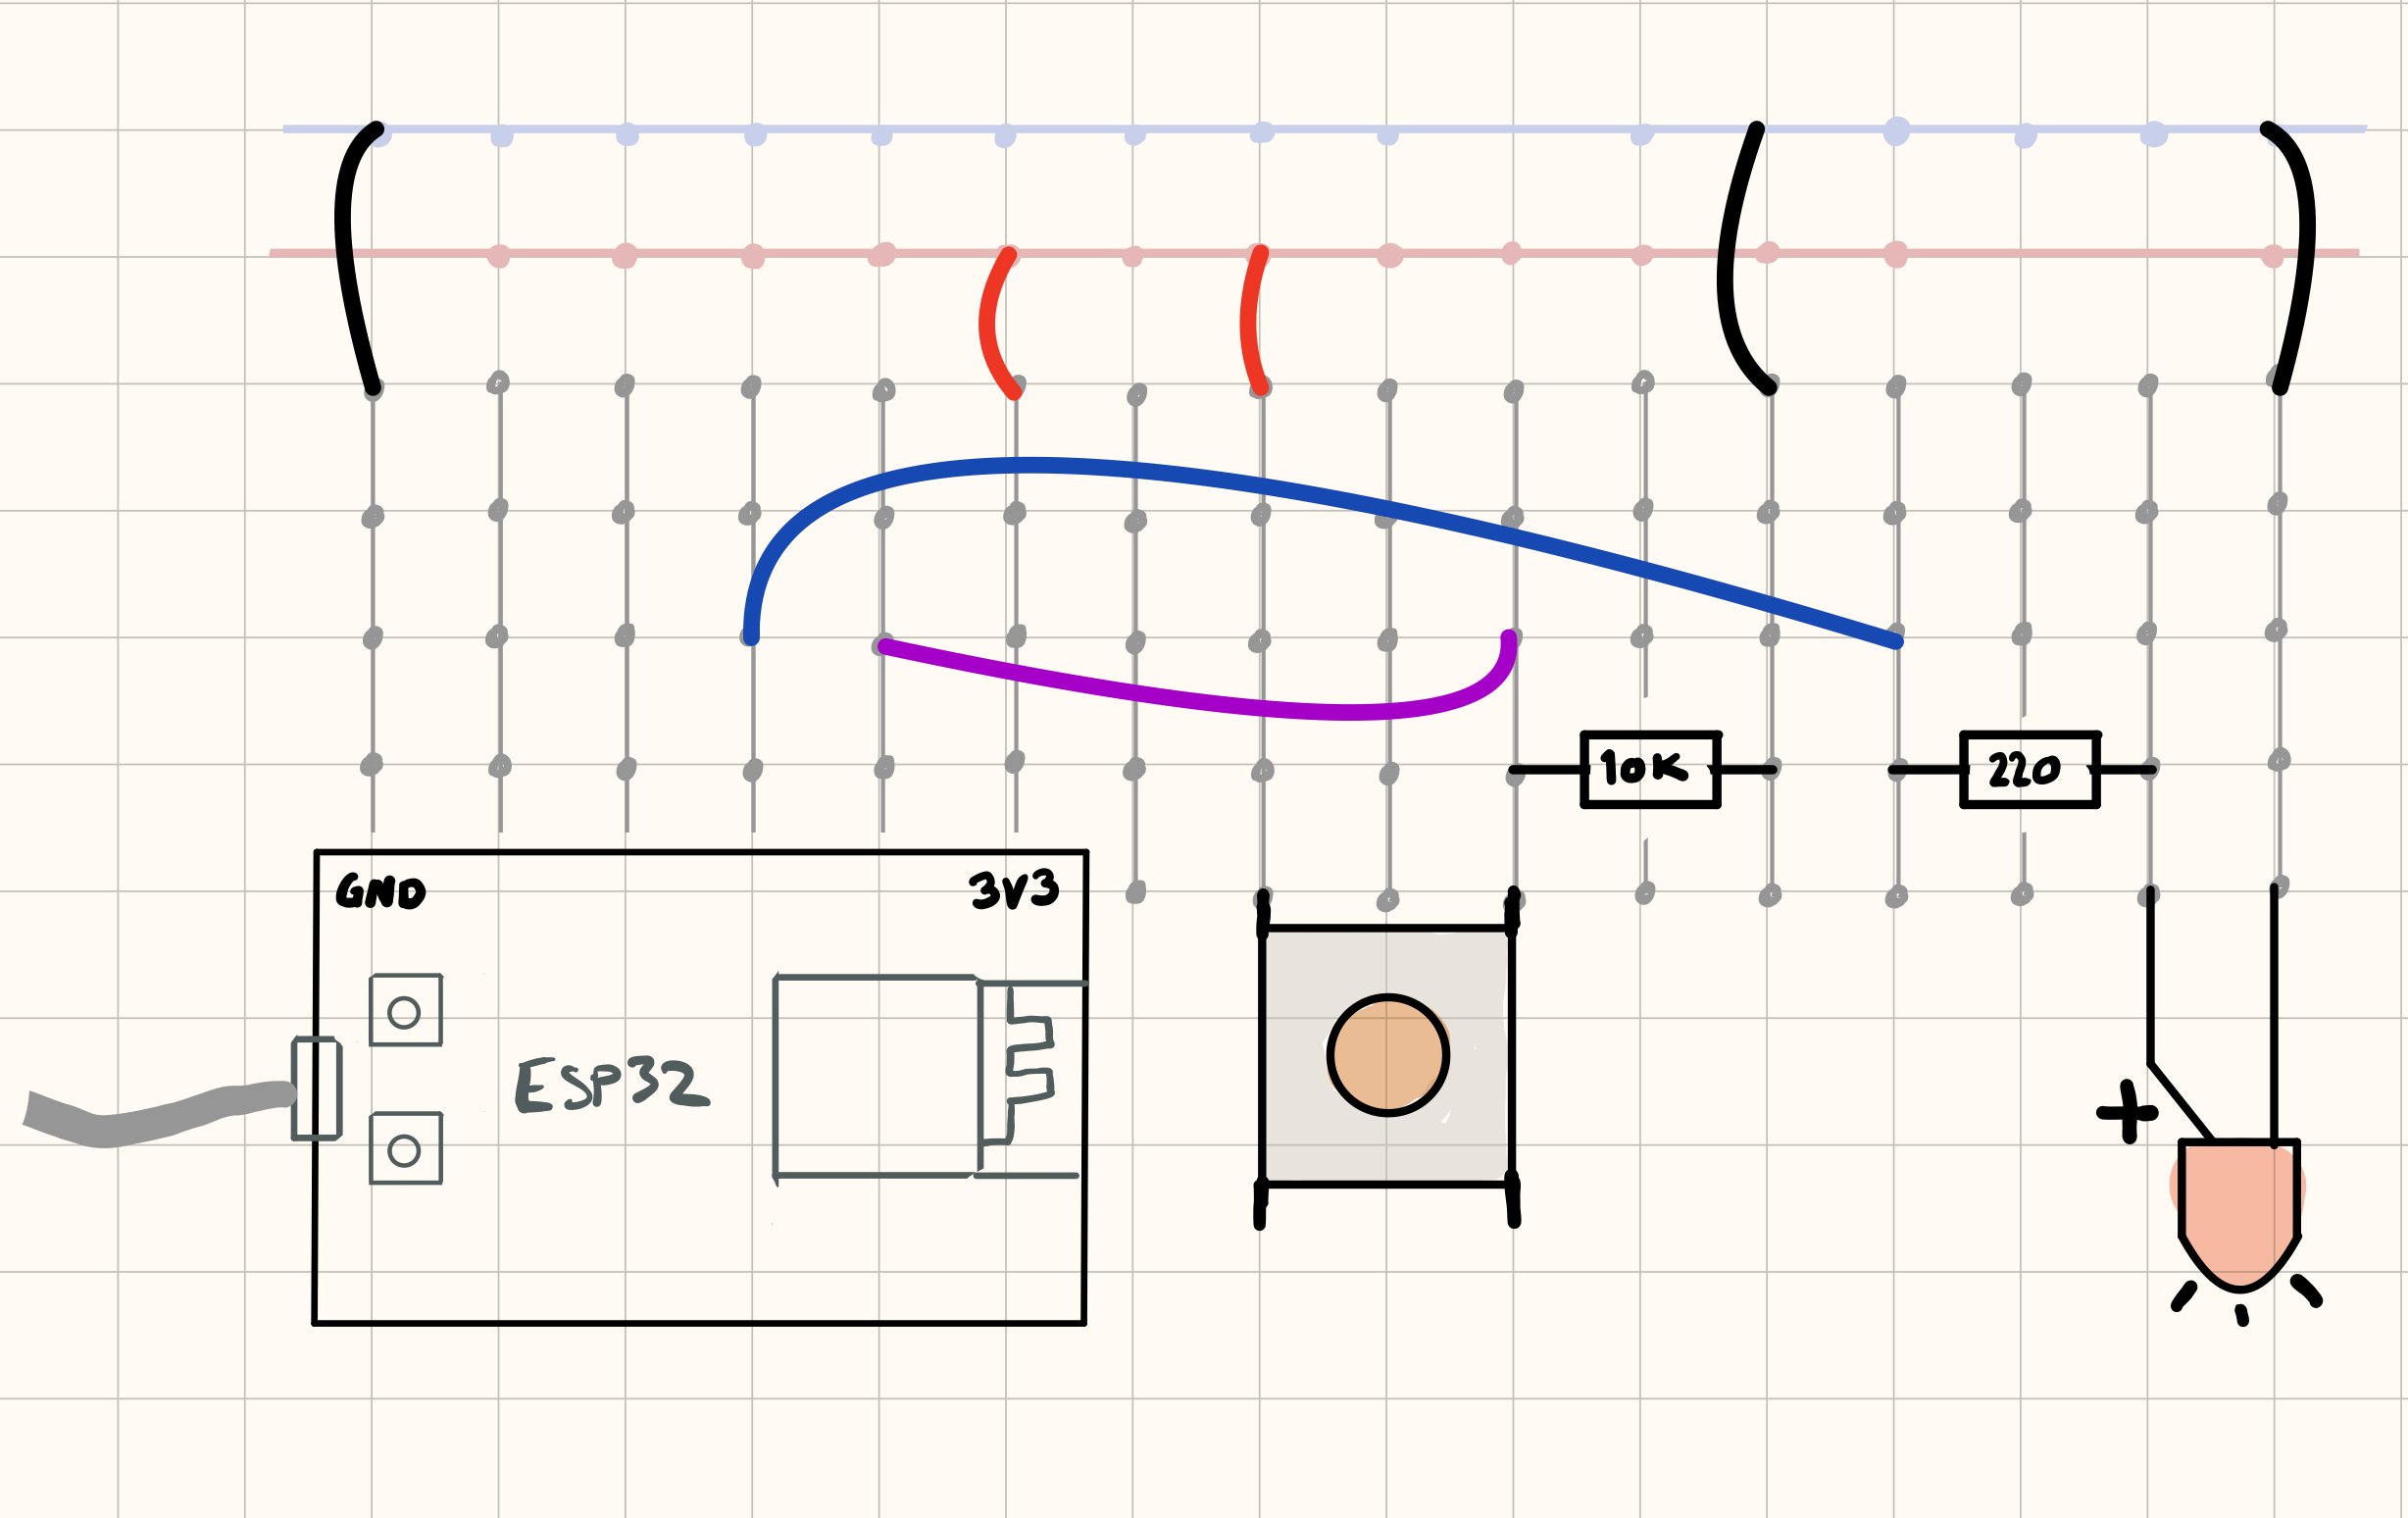 10K
220
GND
3V3
ESP32
+